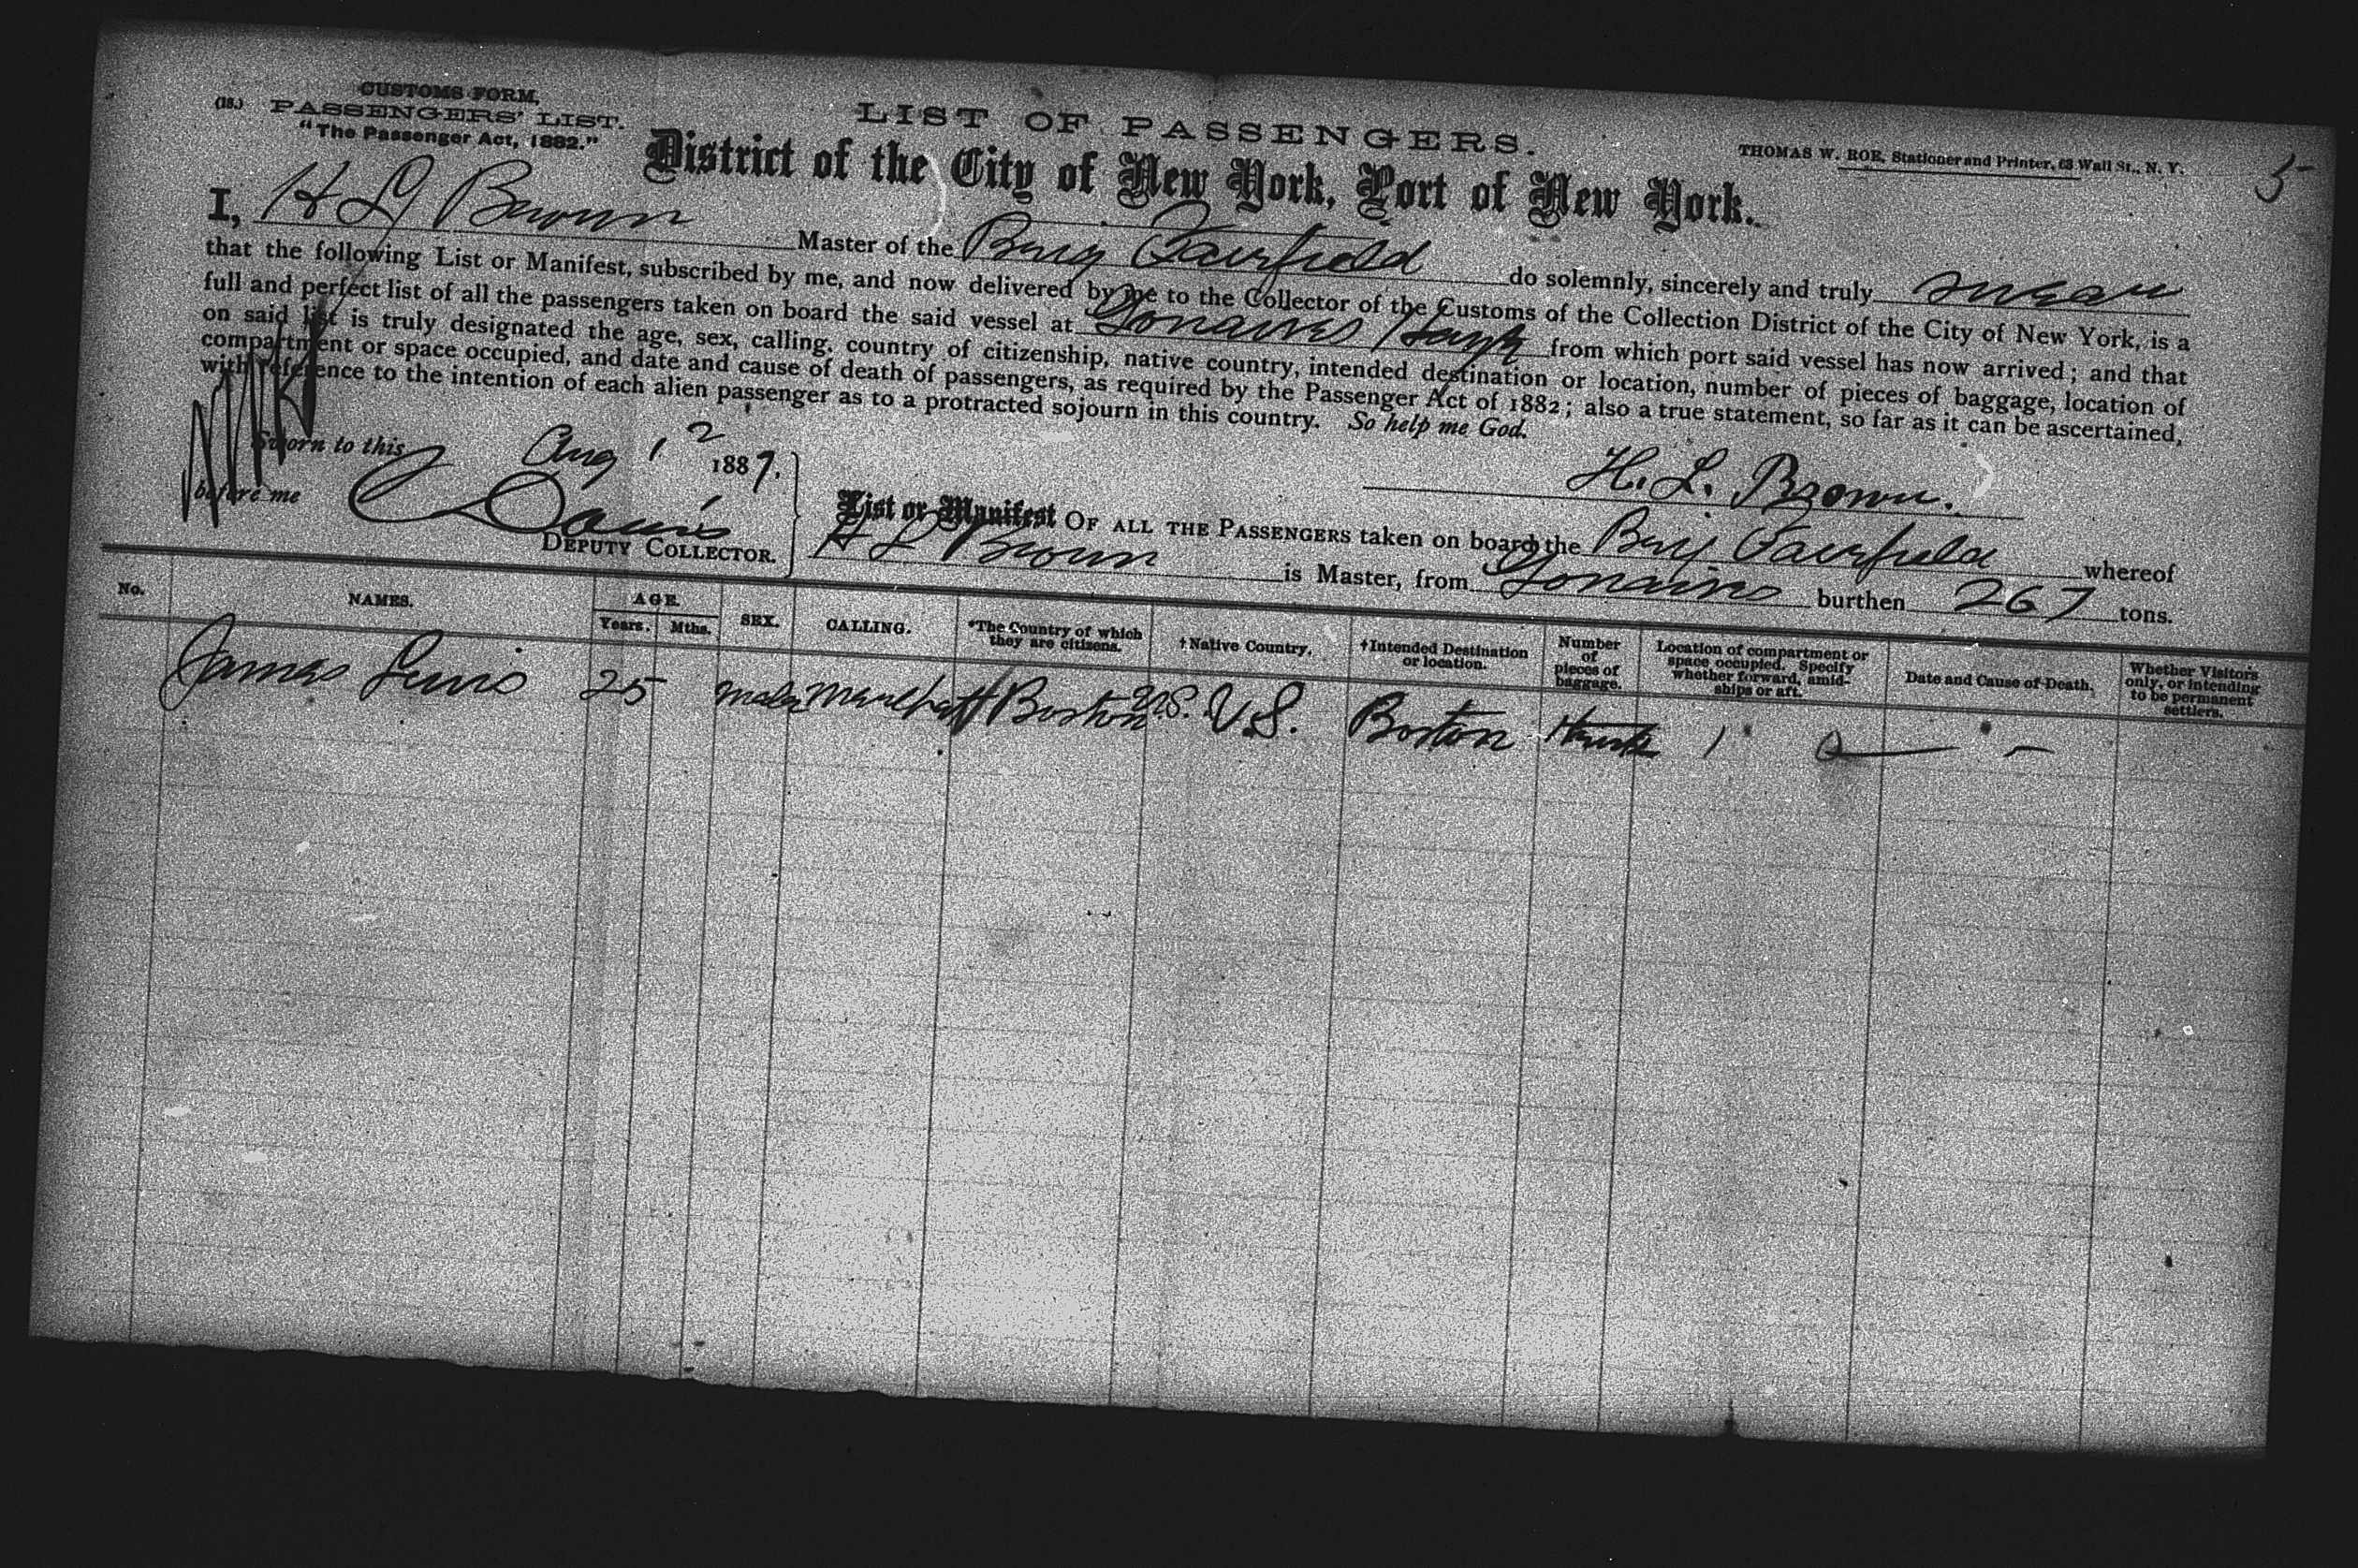 CUSTOMS FORM,
(18.) PASSENGERS' LIST.
"The Passenger Act, 1882."
LIST OF PASSENGERS.
THOMAS W. ROE, Stationer and Printer, 63 Wall St., N. Y.
5
District of the City of New York, Port of New York.
I, H L Brown Master of the Brig Fairfield do solemnly, sincerely and truly swear
that the following List or Manifest, subscribed by me, and now delivered by me to the Collector of the Customs of the Collection District of the City of New York, is a
full and perfect list of all the passengers taken on board the said vessel at Gonaives Hayti from which port said vessel has now arrived; and that
on said list is truly designated the age, sex, calling, country of citizenship, native country, intended destination or location, number of pieces of baggage, location of
compartment or space occupied, and date and cause of death of passengers, as required by the Passenger Act of 1882; also a true statement, so far as it can be ascertained,
with reference to the intention of each alien passenger as to a protracted sojourn in this country. So help me God.
Sworn to this Aug 12 1887.
H. L. Brown.
before me Davis
DEPUTY COLLECTOR.
List or Manifest OF ALL THE PASSENGERS taken on board the Brig Fairfield whereof
H L Brown is Master, from Gonaives burthen 267 tons.
No. NAMES. AGE. Years. Mths. SEX. CALLING. *The Country of which they are citizens. †Native Country. †Intended Destination or location. Number of pieces of baggage. Location of compartment or space occupied. Specify whether forward, amidships or aft. Date and Cause of Death. Whether Visitors only, or intending to be permanent settlers.
James Lewis 25 male Boston U.S. U.S. Boston 1 —